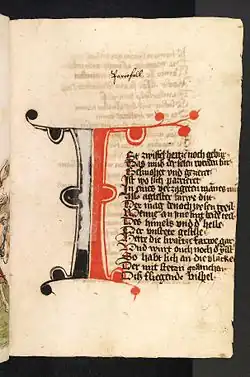 Parcifall
St zwifel hertze noch gebur
Das mus der selen werden sur
Gesmehet und gezieret
Ist wo sich parrieret
In eines verzageten mannes mut
Als agelster farwe dut
Der mag dennoch wesen geil
Wenne an ime sint beide teil
Des himels und d' helle
Der unstete geselle
Hette die swartze farwe gar
Und wurt ouch noch d'
So habt sich an die blancke
Der mit steten gedancken
Dis fliegende